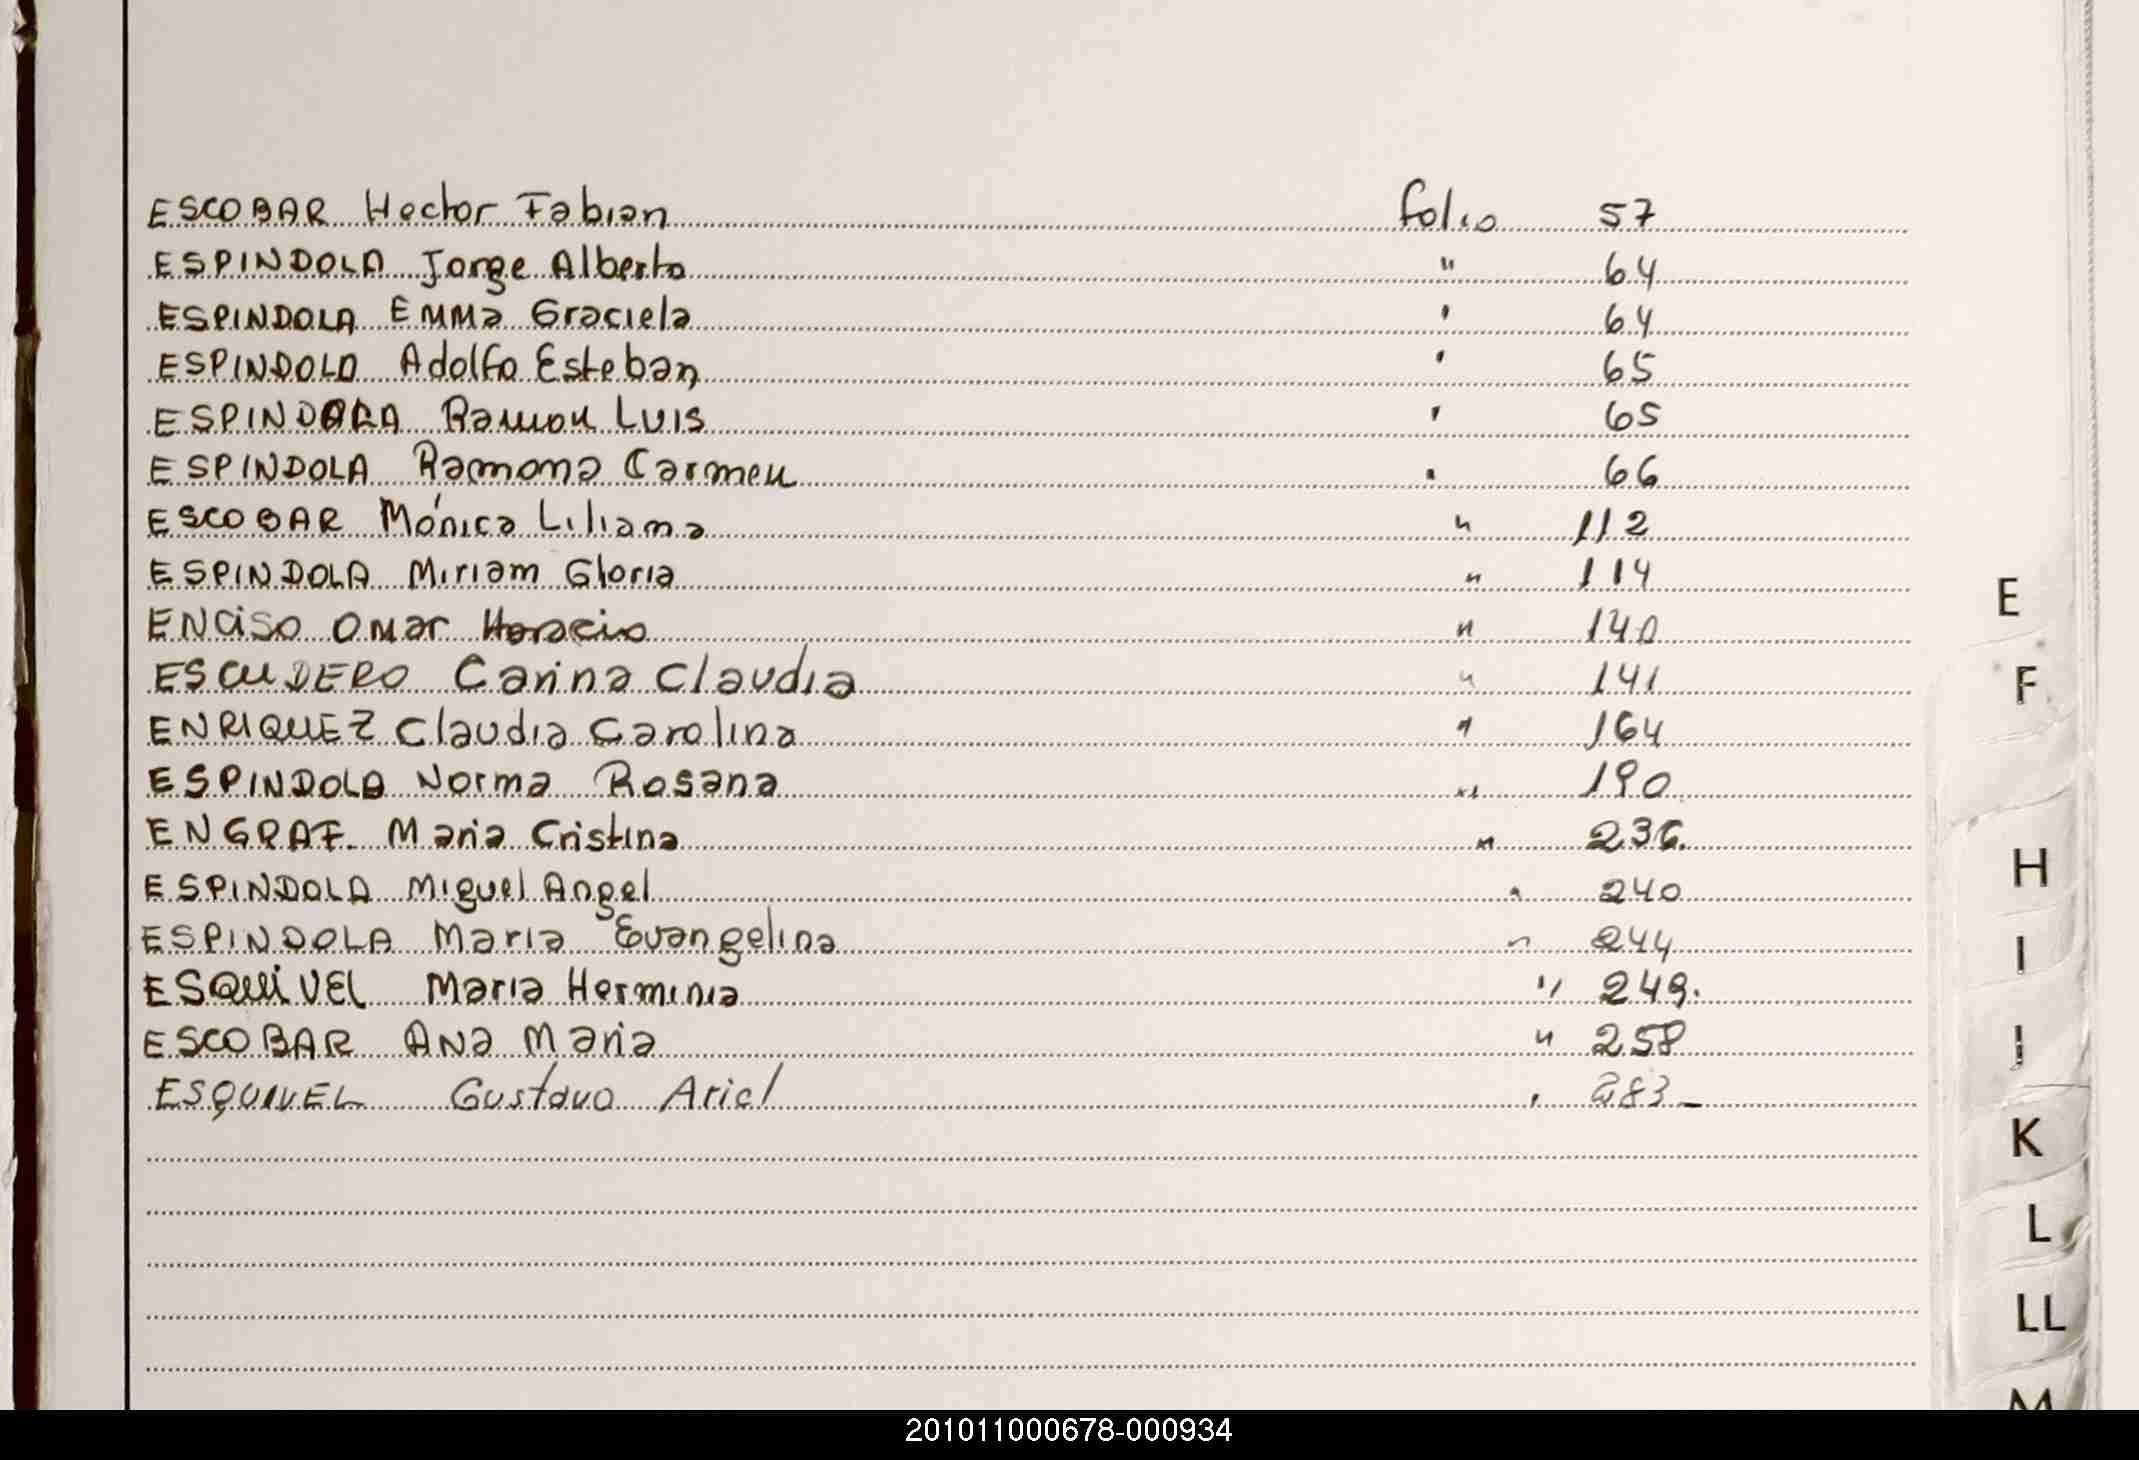 ESCOBAR Hector Fabian folio 57
ESPINDOLA Jorge Alberto " 64
ESPINDOLA Emma Graciela ' 64
ESPINDOLA Adolfo Esteban ' 65
ESPINDOLA Ramon Luis ' 65
ESPINDOLA Ramona Carmen . 66
ESCOBAR Mónica Liliana " 112
ESPINDOLA Miriam Gloria " 114
ENCISO Omar Horacio " 140
ESCUDERO Carina Claudia " 141
ENRIQUEZ Claudia Carolina " 164
ESPINDOLA Norma Rosana " 190
ENGRAF. Maria Cristina " 236.
ESPINDOLA Miguel Angel " 240
ESPINDOLA Maria Evangelina " 244
ESQUIVEL Maria Herminia " 249.
ESCOBAR Ana Maria " 258
ESQUIVEL Gustavo Ariel , 283_
E
F
H
I
J
K
L
LL
M
201011000678-000934